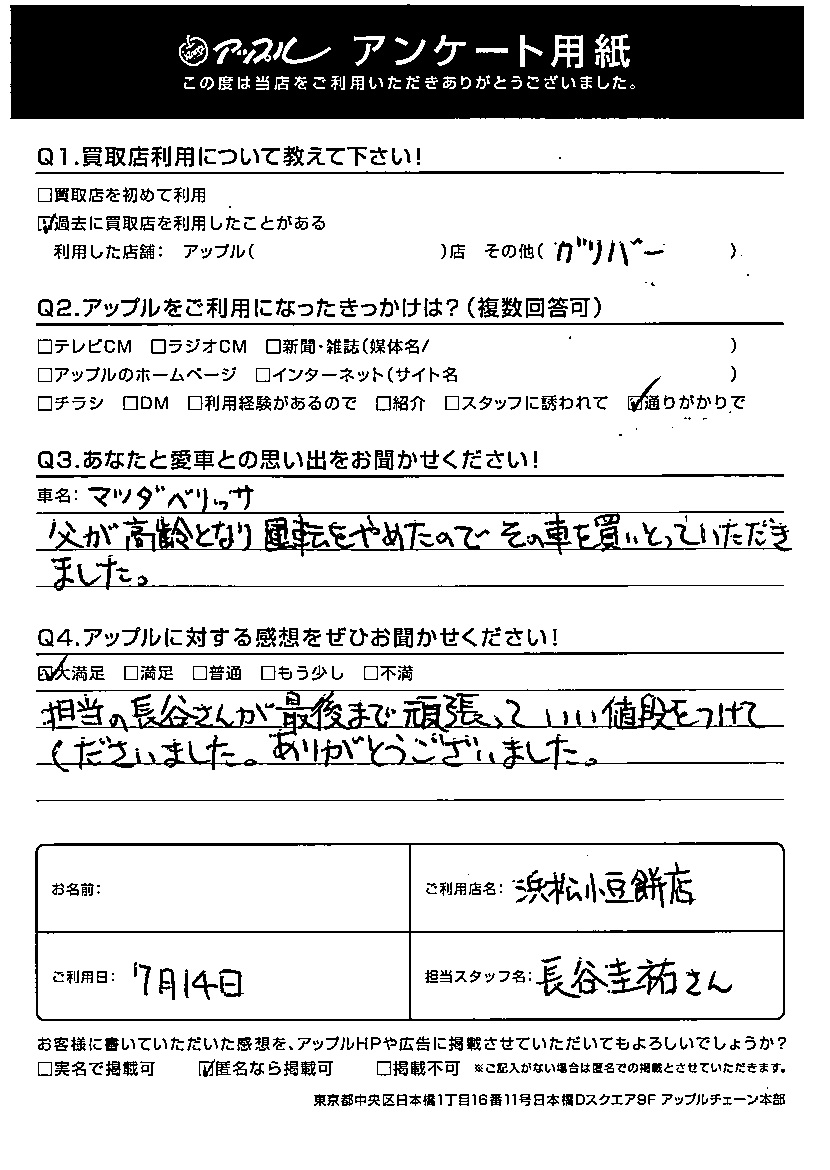 アップル アンケート用紙
この度は当店をご利用いただきありがとうございました。
Q1.買取店利用について教えて下さい!
□買取店を初めて利用
☑過去に買取店を利用したことがある
利用した店舗: アップル( )店 その他( ガリバー )
Q2.アップルをご利用になったきっかけは?(複数回答可)
□テレビCM □ラジオCM □新聞・雑誌(媒体名/ )
□アップルのホームページ □インターネット(サイト名 )
□チラシ □DM □利用経験があるので □紹介 □スタッフに誘われて ☑通りがかりで
Q3.あなたと愛車との思い出をお聞かせください!
車名: マツダベリッサ
父が高齢となり運転をやめたので その車を買いとっていただき
ました。
Q4.アップルに対する感想をぜひお聞かせください!
☑大満足 □満足 □普通 □もう少し □不満
担当の長谷さんが最後まで頑張って いい値段をつけて
くださいました。ありがとうございました。
お名前:
ご利用店名: 浜松小豆餅店
ご利用日: 7月14日
担当スタッフ名: 長谷圭祐さん
お客様に書いていただいた感想を、アップルHPや広告に掲載させていただいてもよろしいでしょうか?
□実名で掲載可 ☑匿名なら掲載可 □掲載不可 ※ご記入がない場合は匿名での掲載とさせていただきます。
東京都中央区日本橋1丁目16番11号日本橋Dスクエア9F アップルチェーン本部